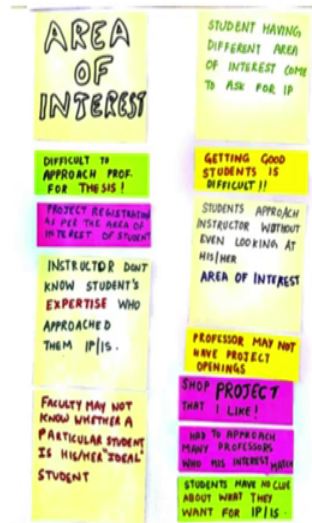 AREA
OF
INTEREST
DIFFICULT TO
APPROACH PROF.
FOR THESIS!
PROJECT REGISTRATION
AS PER THE AREA OF
INTEREST OF STUDENT
INSTRUCTOR DONT
KNOW STUDENT'S
EXPERTISE WHO
APPROACHED
THEM IP/IS.
FACULTY MAY NOT
KNOW WHETHER A
PARTICULAR STUDENT
IS HIS/HER "IDEAL"
STUDENT
STUDENT HAVING
DIFFERENT AREA
OF INTEREST COME
TO ASK FOR IP
GETTING GOOD
STUDENTS IS
DIFFICULT!!
STUDENTS APPROACH
INSTRUCTOR WITHOUT
EVEN LOOKING AT
HIS/HER
AREA OF INTEREST
PROFESSOR MAY NOT
HAVE PROJECT
OPENINGS
SHOP PROJECT
THAT I LIKE!
HAD TO APPROACH
MANY PROFESSORS
WHO HIS INTEREST MATCH
STUDENTS HAVE NO CLUE
ABOUT WHAT THEY
WANT FOR IP/IS.